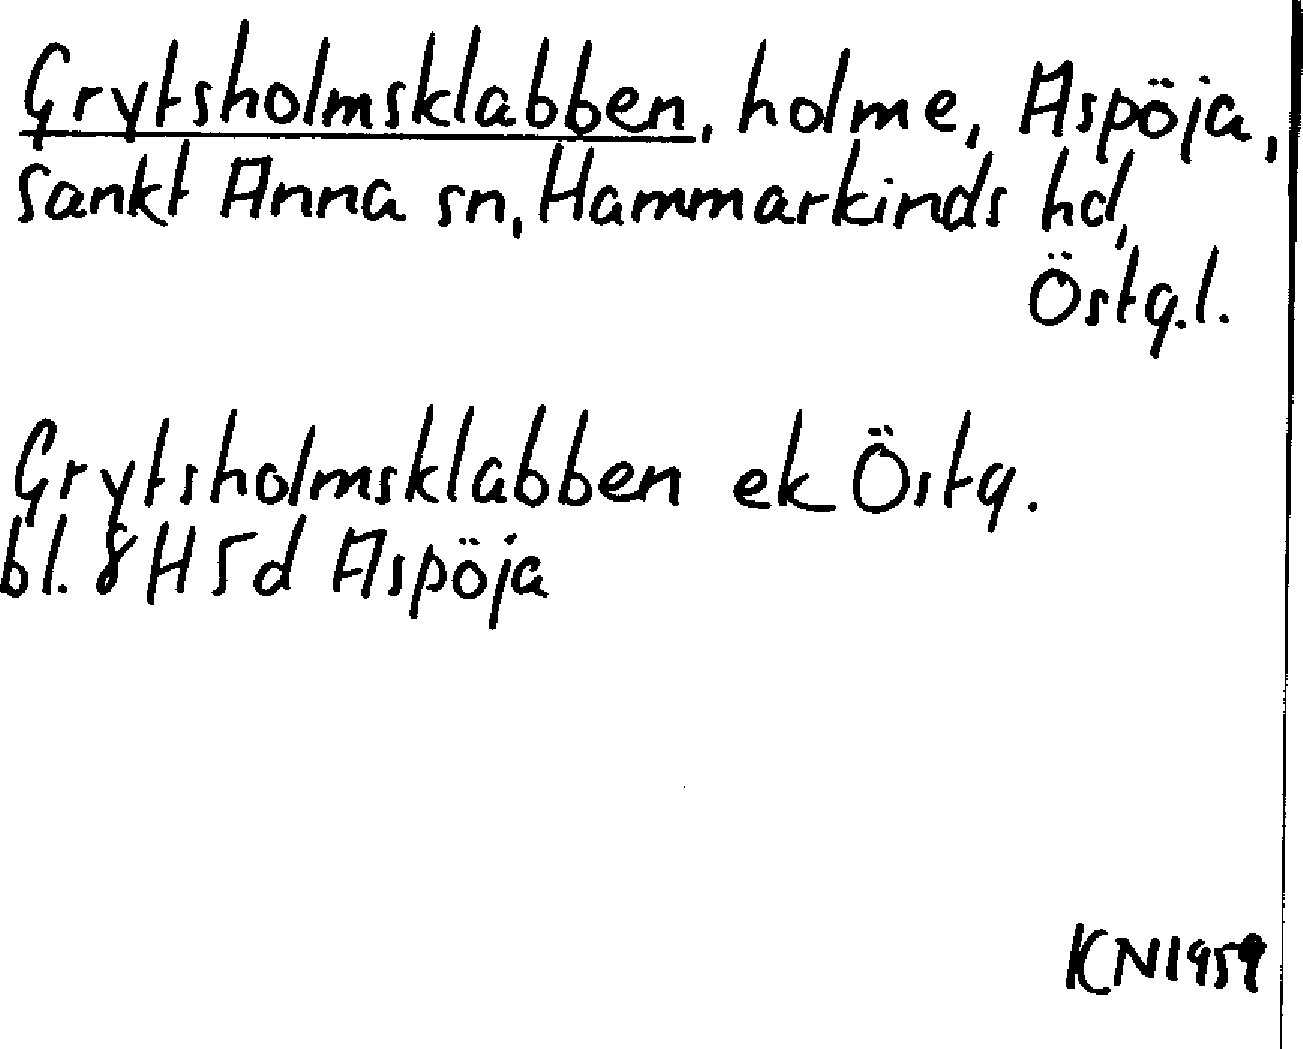 Grytsholmsklabben, holme, Aspöja,
Sankt Anna sn, Hammarkinds hd,
Östg.l.
Grytsholmsklabben ek Östg.
bl. 8H5d Aspöja
KN1959